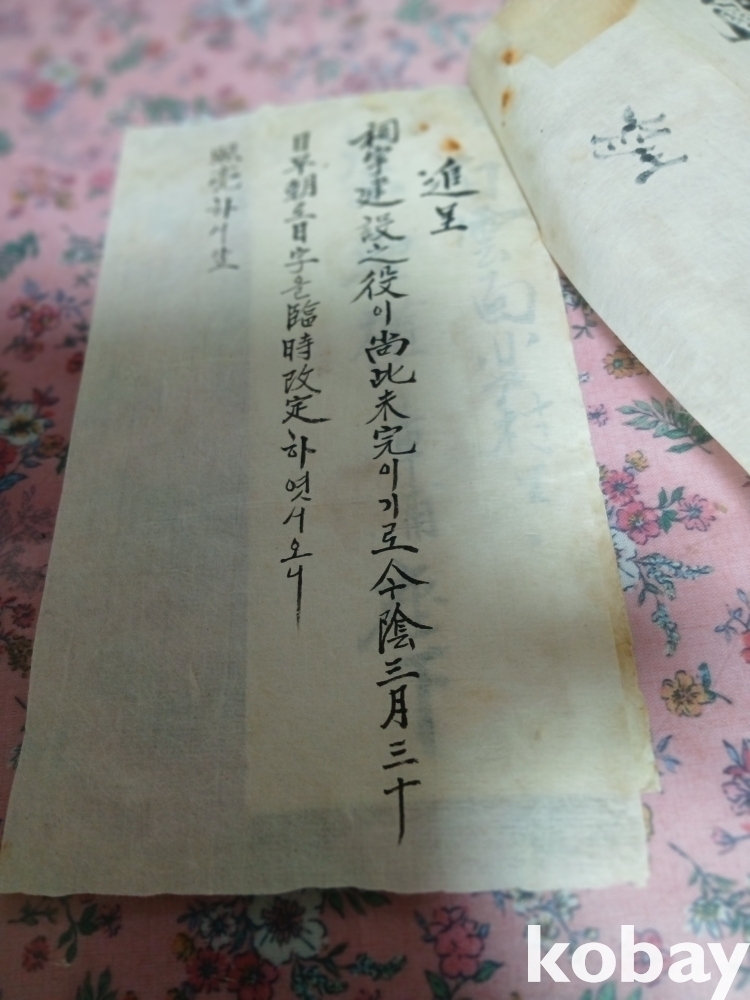 進呈
祠宇建設之役이尙此未完이기로今陰三月三十
日早朝로日字을臨時改定하엿서오니
照亮하시
kobay